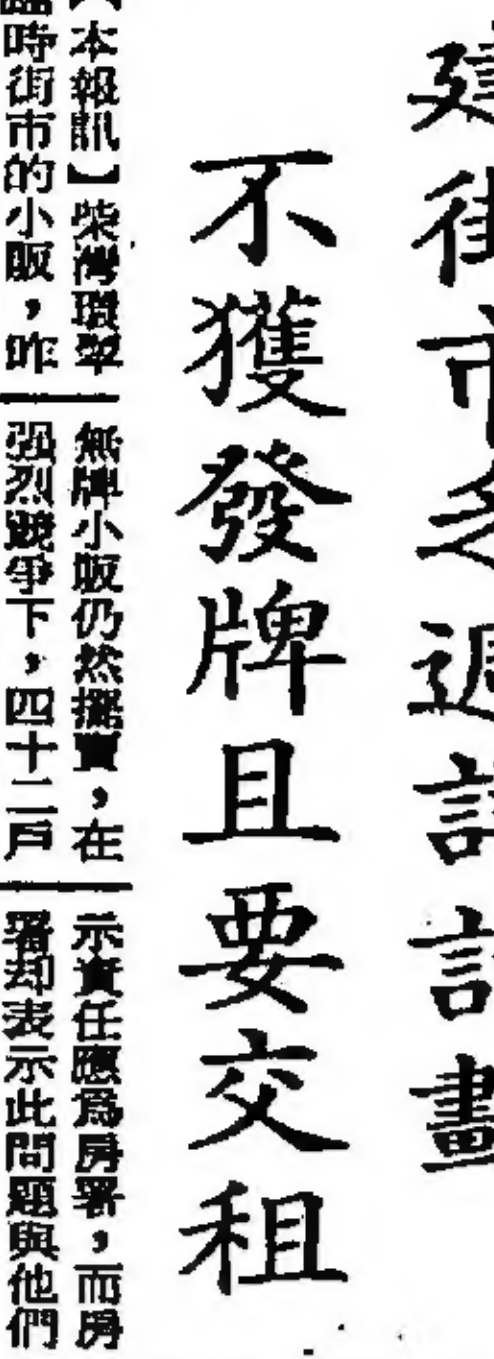 建街市週詳計劃
不獲發牌且要交租
【本報訊】柴灣環翠
臨時街市的小販，昨
無牌小販仍然擺賣，在
强烈競爭下，四十二戶
示責任應爲房署，而房
署却表示此問題與他們